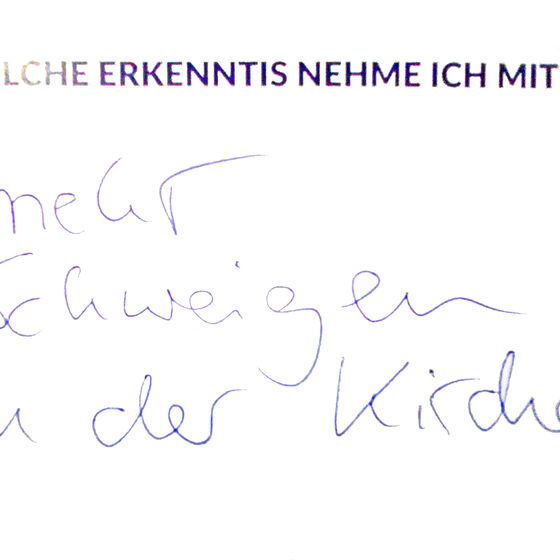 LCHE ERKENNTIS NEHME ICH MIT
mehr
Schweigen
in der Kirche